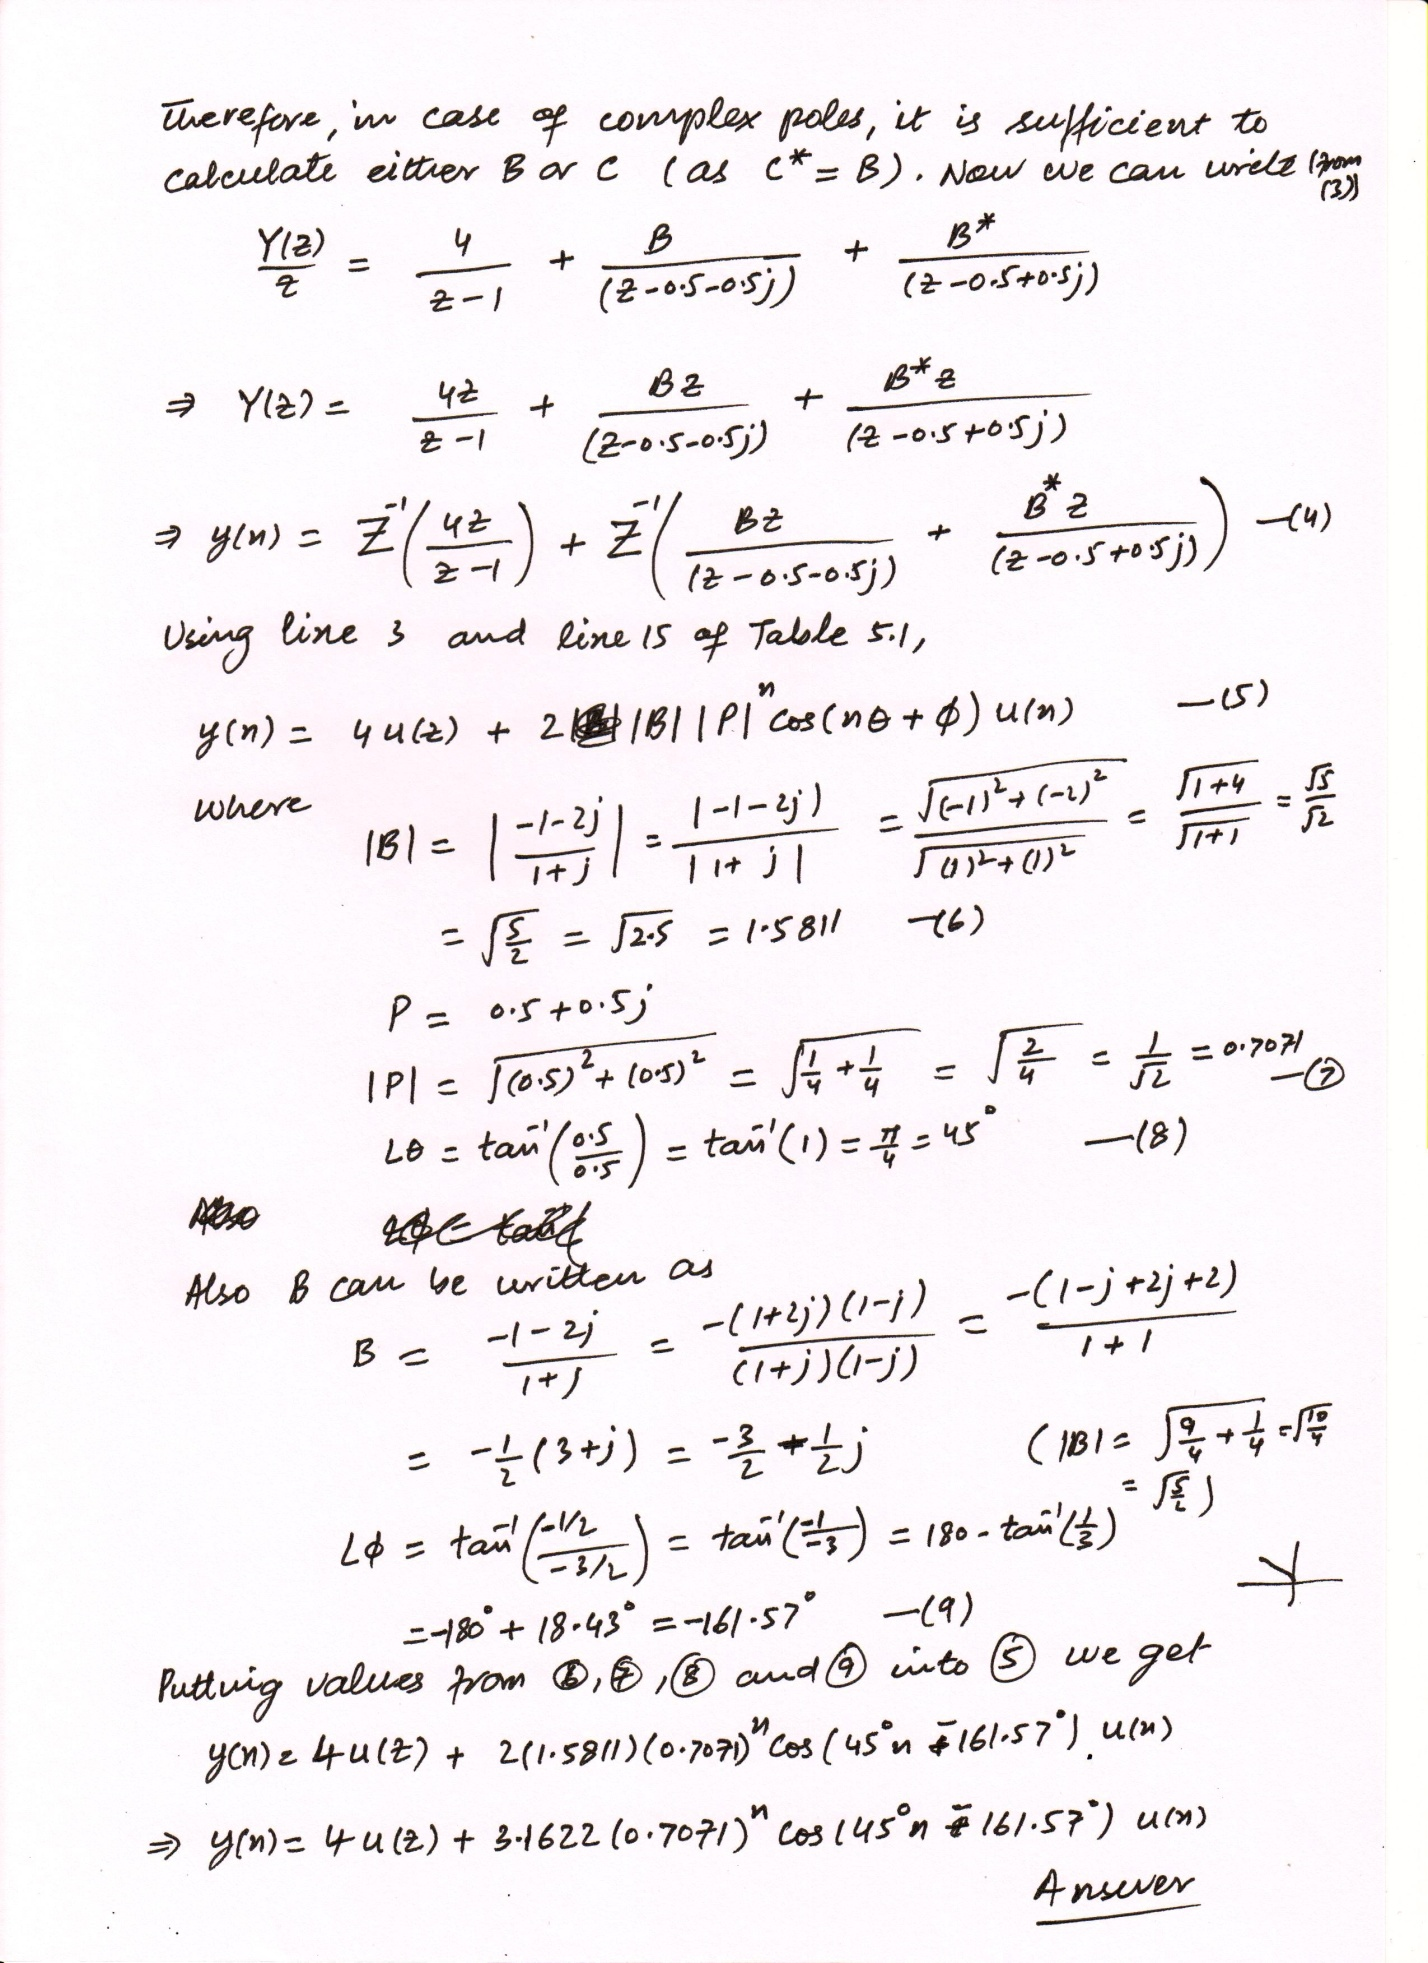 Therefore, in case of complex poles, it is sufficient to
calculate either B or C (as C* = B). Now we can write (from (3))
Y(z)/z = 4/(z-1) + B/(z-0.5-0.5j) + B*/(z-0.5+0.5j)
⇒ Y(z) = 4z/(z-1) + Bz/(z-0.5-0.5j) + B*z/(z-0.5+0.5j)
⇒ y(n) = Z⁻¹(4z/(z-1)) + Z⁻¹(Bz/(z-0.5-0.5j) + B*z/(z-0.5+0.5j)) —(4)
Using line 3 and line 15 of Table 5.1,
y(n) = 4u(z) + 2|B||P|ⁿ cos(nθ + φ) u(n) —(5)
where
|B| = |(-1-2j)/(1+j)| = |-1-2j)/|1+j| = √((-1)²+(-2)²)/√((1)²+(1)²) = √(1+4)/√(1+1) = √5/√2
= √(5/2) = √2.5 = 1.5811 —(6)
P = 0.5+0.5j
|P| = √((0.5)²+(0.5)²) = √(1/4+1/4) = √(2/4) = 1/√2 = 0.7071 —(7)
∠θ = tan⁻¹(0.5/0.5) = tan⁻¹(1) = π/4 = 45° —(8)
Also B can be written as
B = (-1-2j)/(1+j) = -(1+2j)(1-j)/((1+j)(1-j)) = -(1-j+2j+2)/(1+1)
= -1/2(3+j) = -3/2 - 1/2 j (|B| = √(9/4+1/4) = √(10/4)
= √(5/2))
∠φ = tan⁻¹((-1/2)/(-3/2)) = tan⁻¹(-1/-3) = 180 - tan⁻¹(1/3)
= -180° + 18.43° = -161.57° —(9)
Putting values from (6), (7), (8) and (9) into (5) we get
y(n) = 4u(z) + 2(1.5811)(0.7071)ⁿ cos(45°n - 161.57°) u(n)
⇒ y(n) = 4u(z) + 3.1622(0.7071)ⁿ cos(45°n - 161.57°) u(n)
Answer